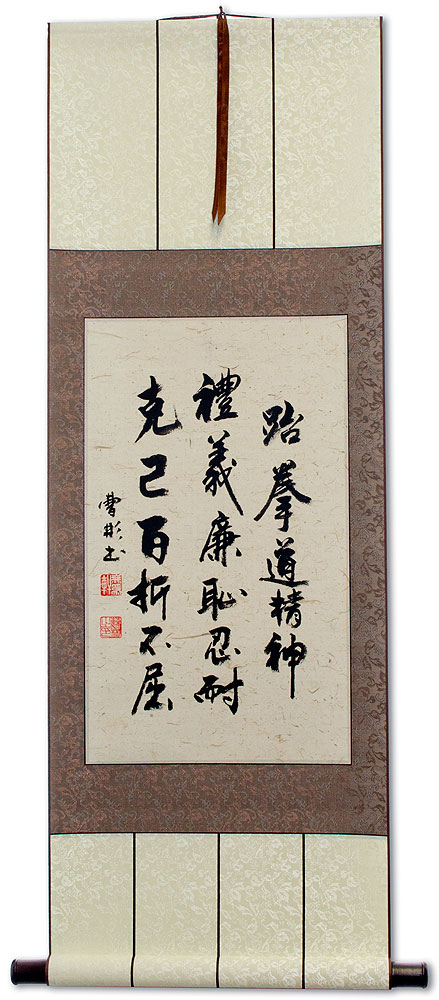 跆拳道精神
禮義廉恥忍耐
克己百折不屈
曹彬書